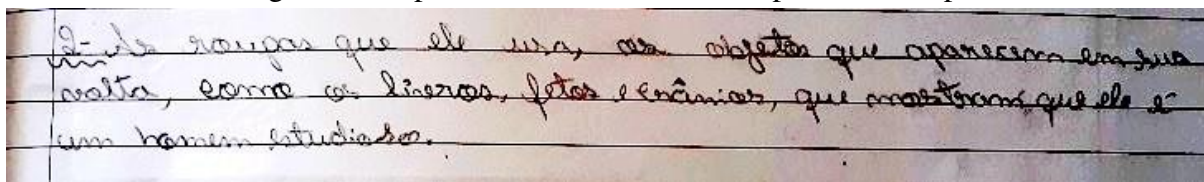 2- As roupas que ele usa, os objetos que aparecem em sua
volta, como os livros, fetos e crânios, que mostram que ele é
um homem estudioso.